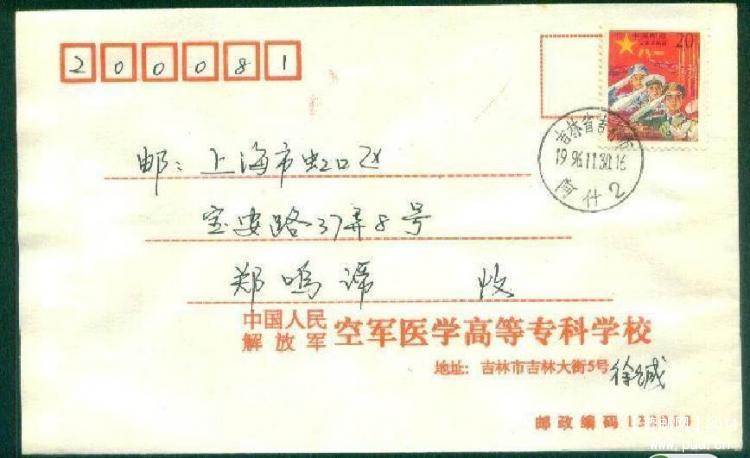 200081
中国邮政
20
八一
吉林省吉
1996.11.30.16
什2
邮:上海市虹口区
宝安路37弄8号
郑鸣谛 收
中国人民
解放军 空军医学高等专科学校
地址:吉林市吉林大街5号 徐斌
邮政编码